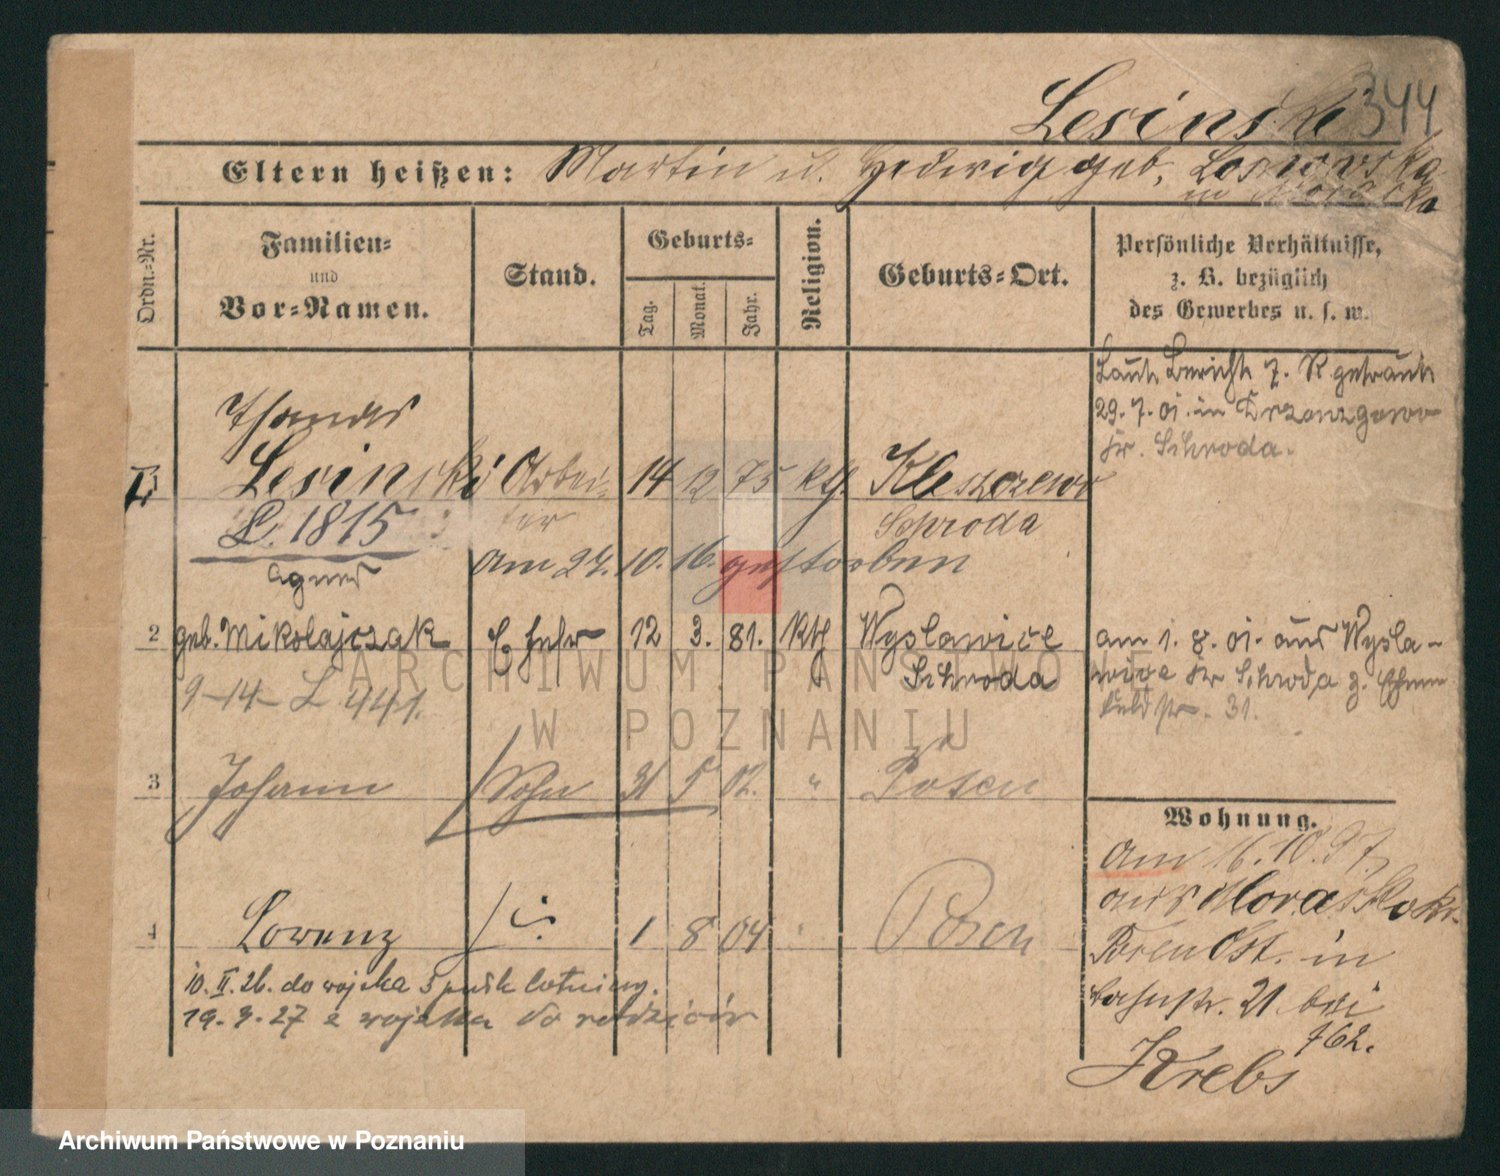 Lesinski 344
Eltern heißen: Martin u. Hedwig geb. Losinska
Ordn.-Nr.
Familien-
und
Vor-Namen.
Stand.
Geburts-
Tag.
Monat.
Jahr.
Religion.
Geburts-Ort.
Persönliche Verhältnisse,
z. B. bezüglich
des Gewerbes u. s. w.
Laut Bericht 7. R. getraut
29. 7. 01. in
Kr. Schroda.
Thomas
1 Lesinski Arbei- 14 12 75 ktl. Kleszczewo
ter Schroda
L. 1815
am 27. 10. 16. gestorben
Agnes
2 geb. Mikolajczak Ehefr 12 3. 81. Ktl Wyslawice
Schroda
am 1. 8. 01. aus Wysla-
wice Kr Schroda z.
feldstr. 31.
9-14- L 441.
3 Johann Sohn 31 5 02. " Posen
4 Lorenz 1 8 04 Posen
10. II. 26. do wojska 3 pułk lotniczy.
19. 9. 27 z wojska do rodziców
Wohnung.
Am 16. 10. 97
aus Morasko Kr.
Posen Ost. in
21 bei
762.
Krebs
ARCHIWUM PAŃSTWOWE
W POZNANIU
Archiwum Państwowe w Poznaniu